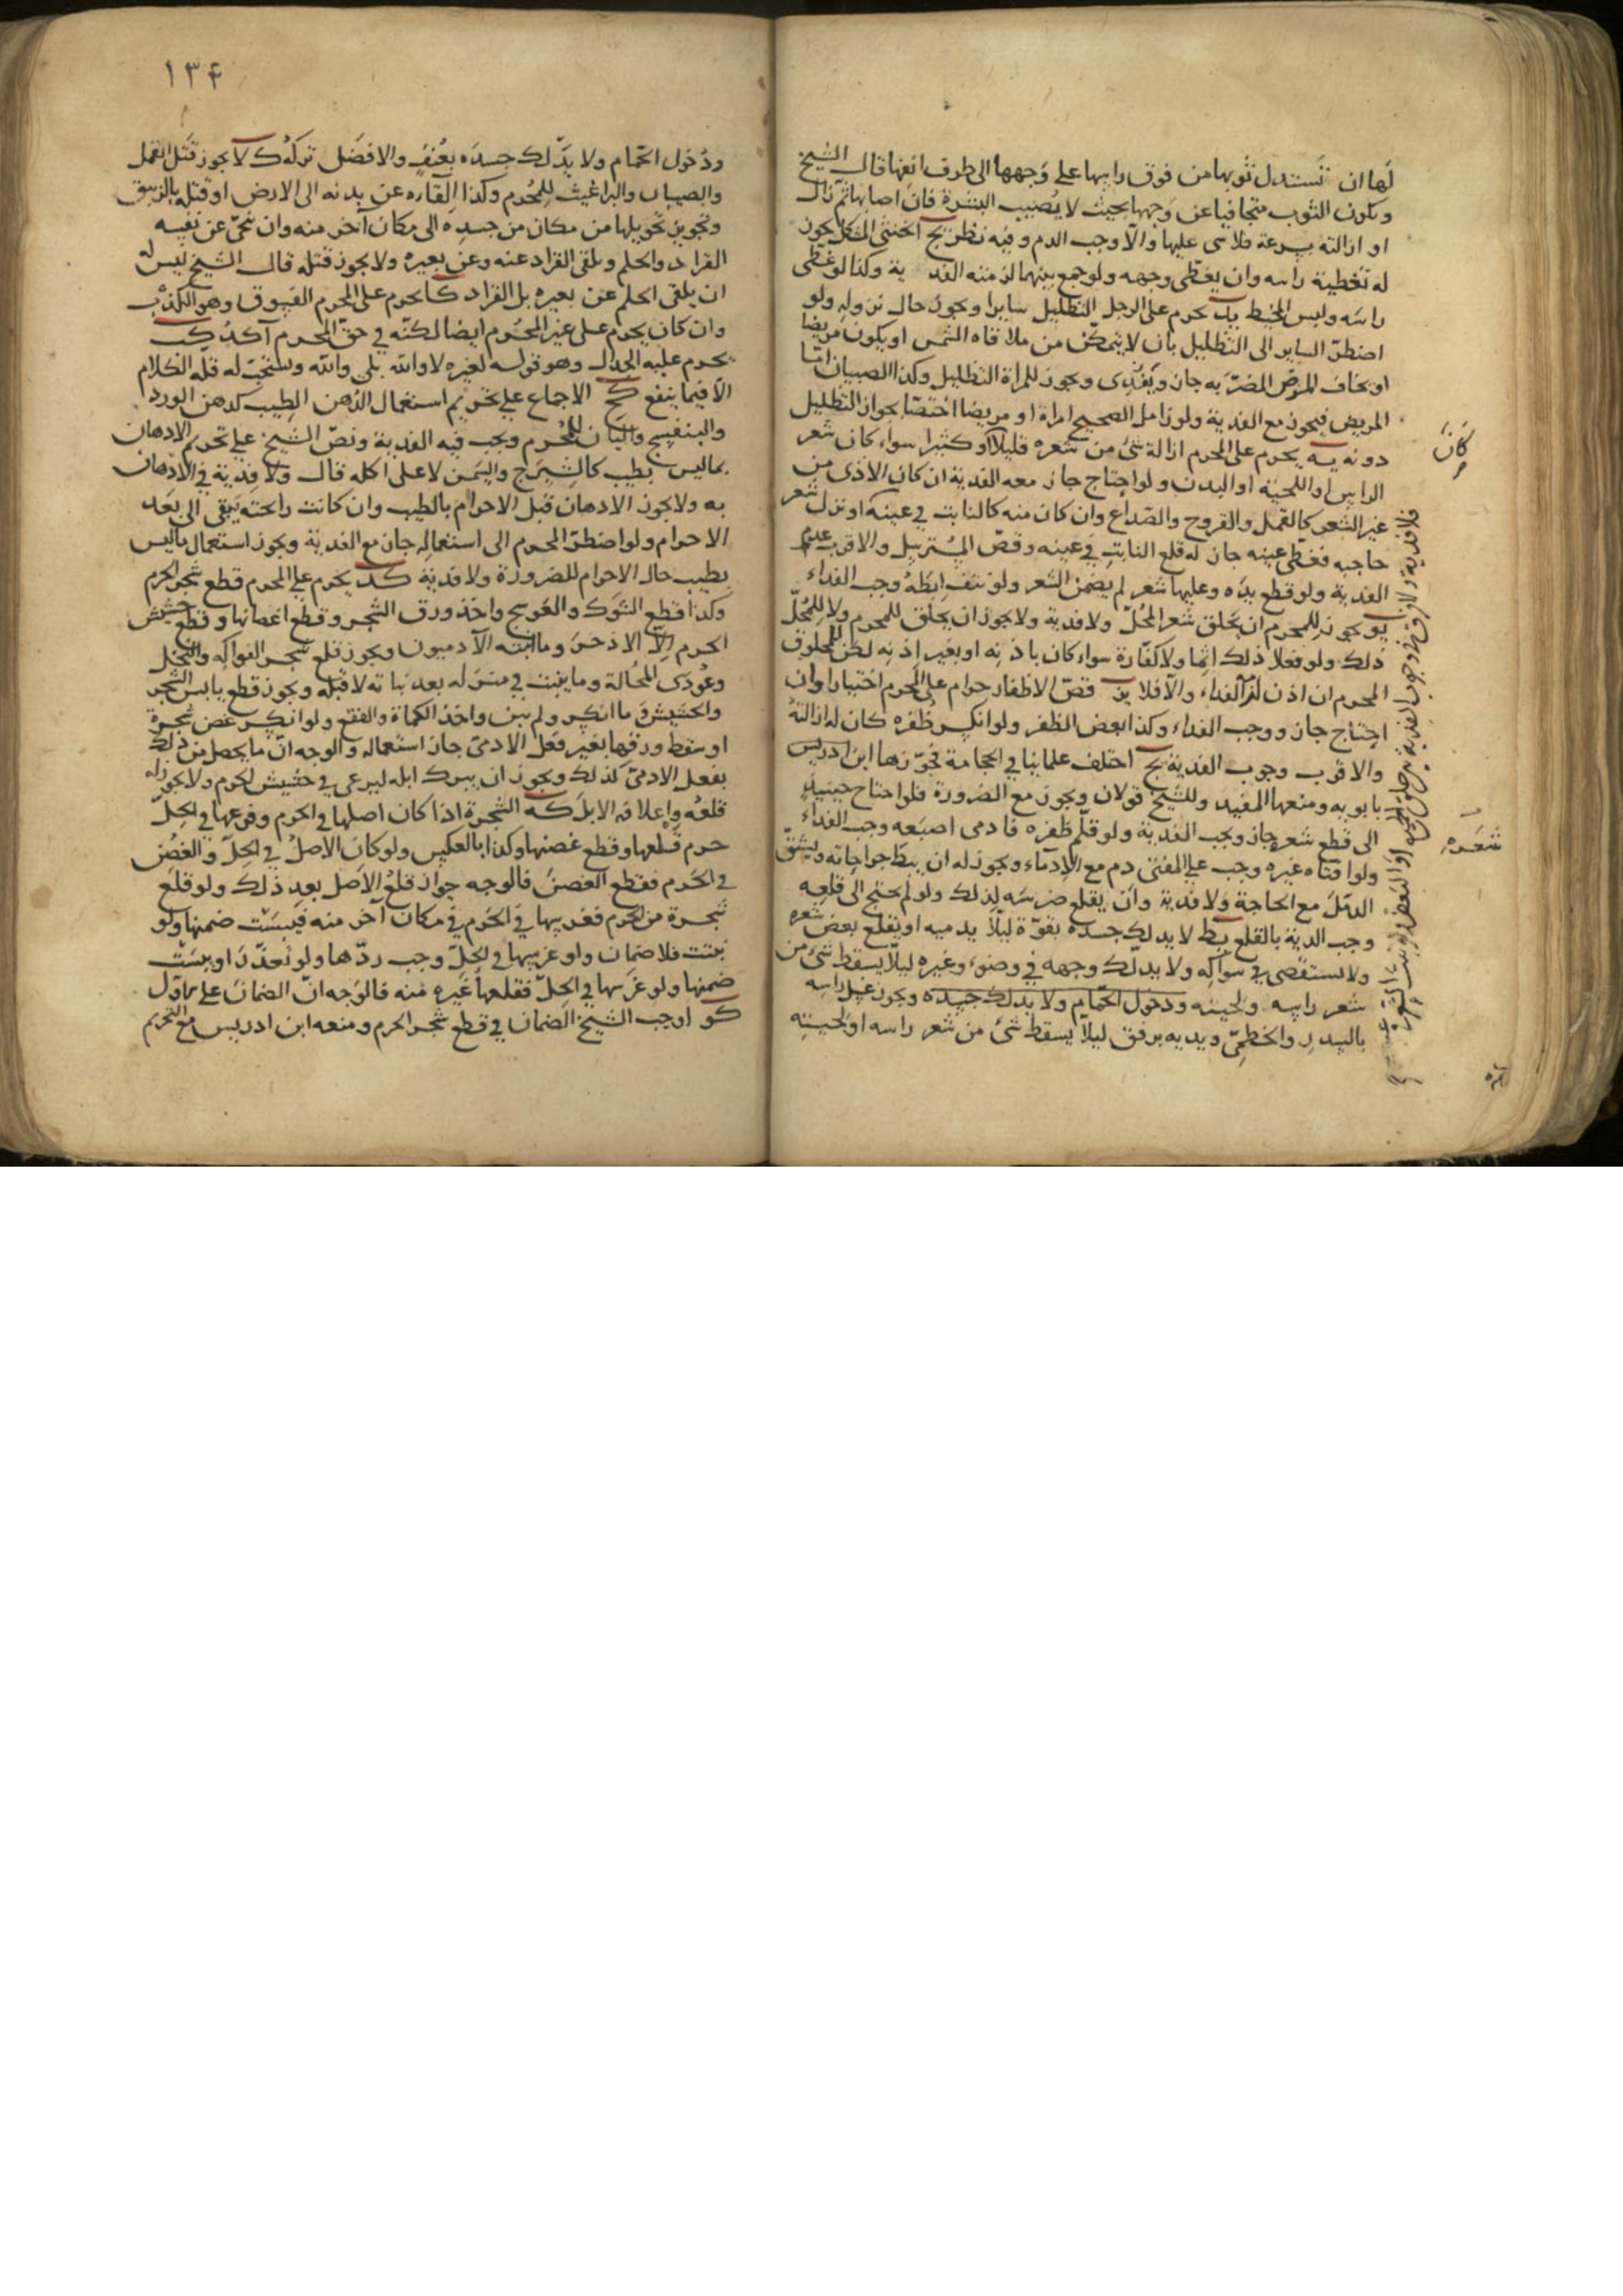 لها ان تستدل ثوبها من فوق راسها على وجهها الى طرف انفها قال الشيخ
ويكون الثوب متجافيا عن وجهها بحيث لا يصيب البشرة فان اصابها ثم زال
او ازالته بسرعة فلا شى عليها والا وجب الدم وفيه نظر يج الخنثى المشكل يجوز
له تغطية راسه وان يغطى وجهه ولو جمع بينهما لزمته الفدية وكذا لو غطى
راسه ولبس المخيط يد يحرم على الرجل التظليل سايرا ويجوز حال نزوله ولو
اضطر الساير الى التظليل بان لا يتمكن من ملاقاه الشمس او يكون مريضا
او يخاف المرض المضر به جاز ويفدى ويجوز للمراة التظليل وكذا الصبيان اما
المريض فيجوز مع الفدية ولو زامل الصحيح امراة او مريضا اختصا بجواز التظليل
دونه يه يحرم على المحرم ازالة شئ من شعره قليلا او كثيرا سواء كان شعر
الراس او اللحية او البدن ولو احتاج جاز معه الفدية ان كان الاذى من
غير الشعر كالقمل والقروح والصداع وان كان منه كالنابت في عينه او نزل شعر
حاجبه فغطى عينه جاز له قلع النابت في عينه وقص المسترسل والاقرب عدم
الفدية ولو قطع يده وعليها شعر لم يضمن الشعر ولو نتف ابطه وجب الفداء
يو يجوز للمحرم ان يحلق شعر المحل ولا فدية ولا يجوز ان يحلق للمحرم ولا للمحل
ذلك ولو فعلا ذلك اثما ولا كفارة سواء كان باذنه او بغير اذنه لكن المحلوق
المحرم ان اذن لزم الفداء والا فلا يز قص الاظفار حرام على المحرم اختيارا وان
احتاج جاز ووجب الفداء وكذا بعض الظفر ولو انكسر ظفره كان له ازالته
والاقرب وجوب الفدية يح اختلف علماينا في الحجامة فجوزها ابن ادريس
بابويه ومنعها المفيد وللشيخ قولان ويجوز مع الضرورة فلو احتاج حينيذ
الى قطع شعره جاز ويجب الفدية ولو قلم ظفره فادمى اصبعه وجب الفداء
ولو افتاه غيره وجب على المفتى دم مع الادماء ويجوز له ان يبط جراحاته ويشق
الدمل مع الحاجة ولا فدية وان يقلع ضرسه لذلك ولو لم يحتج الى قلعه
وجب الدية بالقلع يط لا يدلك جسده بقوة ليلا يدميه او يقلع بعض شعره
ولا يستقصى في سواكه ولا يدلك وجهه في وضوء وغيره ليلا يسقط شئ من
شعر راسه ولحيته ودخول الحمام ولا يدلك جسده ويجوز غسل راسه
بالسدر والخطمى ويديه برفق ليلا يسقط شئ من شعر راسه او لحيته
كان
شعره
١٣۴
ودخول الحمام ولا يدلك جسده بعنف والافضل تركه ك لا يجوز قتل القمل
والصيبان والبراغيث للمحرم وكذا القاره عن بدنه الى الارض او قتله بالزيبق
ويجوز تحويلها من مكان من جسده الى مكان آخر منه وان ينحى عن نفسه
القراد والحلم ويلقى القراد عنه وعن بعيره ولا يجوز قتله قال الشيخ ليس له
ان يلقى الحلم عن بعيره بل القراد كا يحرم على المحرم الفسوق وهو الكذب
وان كان يحرم على غير المحرم ايضا لكنه في حق المحرم آكد كب
يحرم عليه الجدال وهو قوله لغيره لا والله بلى والله ويستحب له قلة الكلام
الا فيما ينفع كج الاجماع على تحريم استعمال الدهن الطيب كدهن الورد
والبنفسج والبان للمحرم ويجب فيه الفدية ونص الشيخ على تحريم الادهان
بما ليس بطيب كالشيرج والسمن لا على اكله قال ولا فدية في الادهان
به ولا يجوز الادهان قبل الاحرام بالطيب وان كانت رايحته تبقى الى بعد
الاحرام ولو اضطر المحرم الى استعماله جاز مع الفدية ويجوز استعمال ما ليس
بطيب حال الاحرام للضرورة ولا فدية كد يحرم على المحرم قطع شجر الحرم
وكذا قطع الشوك والعوسج واخذ ورق الشجر وقطع اغصانها وقطع حشيش
الحرم الا الاذخر وما انبته الآدميون ويجوز قلع شجر الفواكه والنخل
وعودى المحالة وما ينبت في منزله بعد بنائه لا قبله ويجوز قطع يابس الشجر
والحشيش وما انكسر ولم يبن واخذ الكماة والفقع ولو انكسر غصن شجرة
او سقط ورقها بغير فعل الادمى جاز استعماله والوجه ان ما يحصل من ذلك
بفعل الادمى كذلك ويجوز ان يترك ابله ليرعى في حشيش الحرم ولا يجوز له
قلعه واعلافه الابل كه الشجرة اذا كان اصلها في الحرم وفرعها في الحل
حرم قلعها وقطع غصنها وكذا بالعكس ولو كان الاصل في الحل والغصن
في الحرم فقطع الغصن فالوجه جواز قلع الاصل بعد ذلك ولو قلع
شجرة من الحرم فغرسها في الحرم في مكان آخر منه فيبست ضمنها ولو
نبتت فلا ضمان ولو غرسها في الحل وجب ردها ولو تعذر او يبست
ضمنها ولو غرسها في الحل فقلعها غيره منه فالوجه ان الضمان على الاول
كو اوجب الشيخ الضمان في قطع شجر الحرم ومنعه ابن ادريس مع التحريم